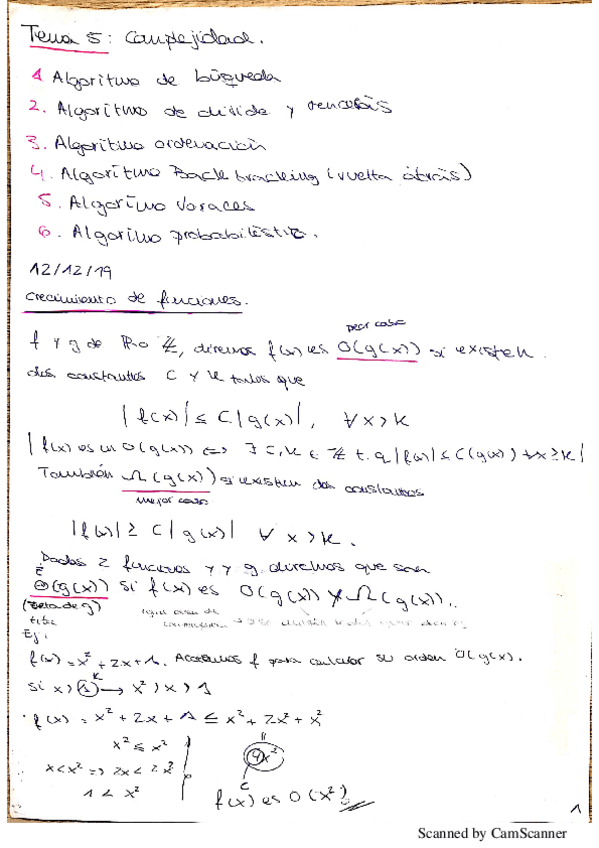 Tema 5: Complejidad.
1 Algoritmo de búsqueda
2. Algoritmo de divide y vencerás
3. Algoritmo ordenación
4. Algoritmo Back tracking (vuelta atrás)
5. Algoritmo voraces
6. Algoritmo probabilístic.
12/12/19
Crecimiento de funciones.
peor caso
f y g de R o Z, diremos f(x) es O(g(x)) si existen
dos constantes C y k tales que
|f(x)| ≤ C|g(x)|, ∀x>k
|f(x) es un O(g(x)) ⟺ ∃ c, k ∈ Z t.q |f(x)| ≤ C(g(x)) ∀x≥k|
También Ω(g(x)) si existen dos constantes
mejor caso
|f(x)| ≥ C|g(x)| ∀ x>k.
Dadas 2 funciones y g diremos que son
Θ(g(x)) si f(x) es O(g(x)) y Ω(g(x)).
(teta de g)
Ej:
f(x) = x² + 2x + 1. Acotamos f para calcular su orden O(g(x)).
k
si x>1 → x² > x > 1
· f(x) = x² + 2x + 1 ≤ x² + 2x² + x²
x² ≤ x²
x < x² => 2x < 2x²
1 < x²
4x²
C
f(x) es O(x²)
1
Scanned by CamScanner